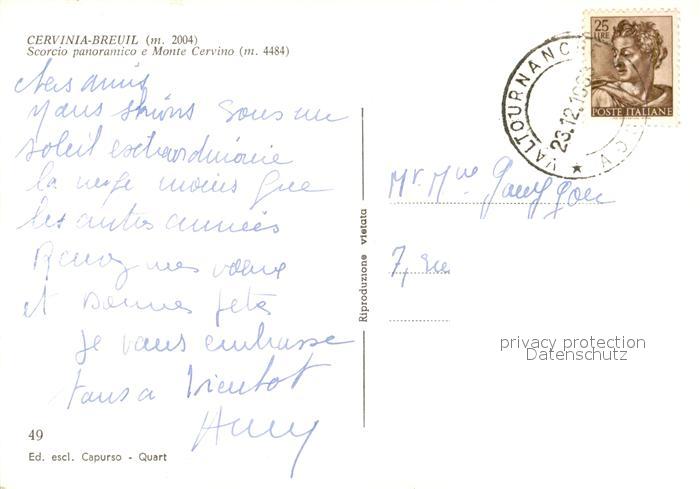 CERVINIA-BREUIL (m. 2004)
Scorcio panoramico e Monte Cervino (m. 4484)
chers amis
nous skions sous un
soleil extraordinaire
la neige moins que
les autres années
Recevez mes vœux
et Bonnes fêtes
je vous embrasse
tous a bientot
49
Ed. escl. Capurso - Quart
Riproduzione vietata
25
LIRE
POSTE ITALIANE
VALTOURNANC
23.12.19
Mr. Mme
7, rue
privacy protection
Datenschutz